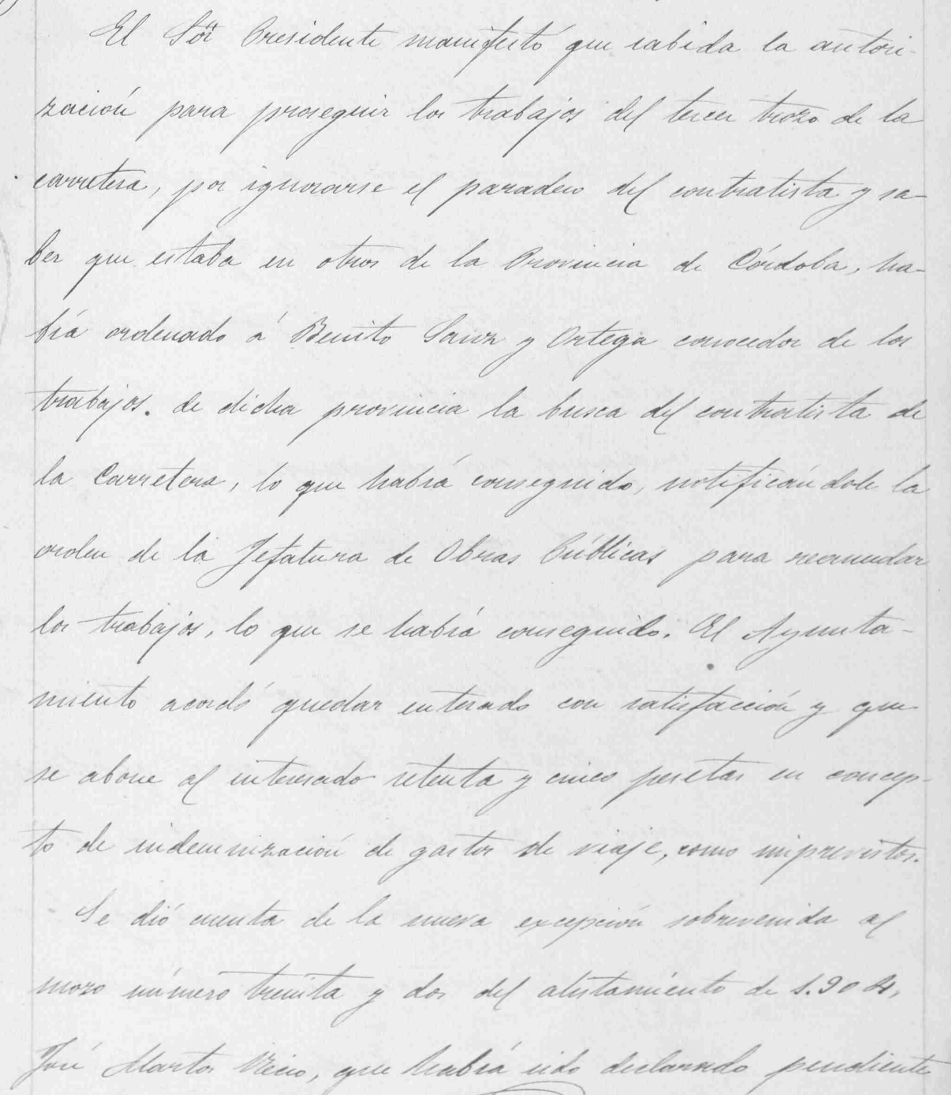 El Sör Presidente manifestó que sabida la autori-
zación para proseguir los trabajos del tercer trozo de la
carretera, por ignorarse el paradero del contratista y sa-
ber que estaba en otros de la Provincia de Córdoba, ha-
bía ordenado á Benito Sanz y Ortega conocedor de los
trabajos. de dicha provincia la busca del contratista de
la Carretera, lo que había conseguido, notificandole la
orden de la Jefatura de Obras Públicas para reanudar
los trabajos, lo que se había conseguido. El Ayunta-
miento acordó quedar enterado con satisfacción y que
se abone al interesado setenta y cinco pesetas en concep-
to de indemnización de gastos de viaje, como imprevistos.
Se dió cuenta de la nueva excepción sobrevenida al
mozo número treinta y dos del alistamiento de 1.904,
José Martos, que había sido declarado pendiente